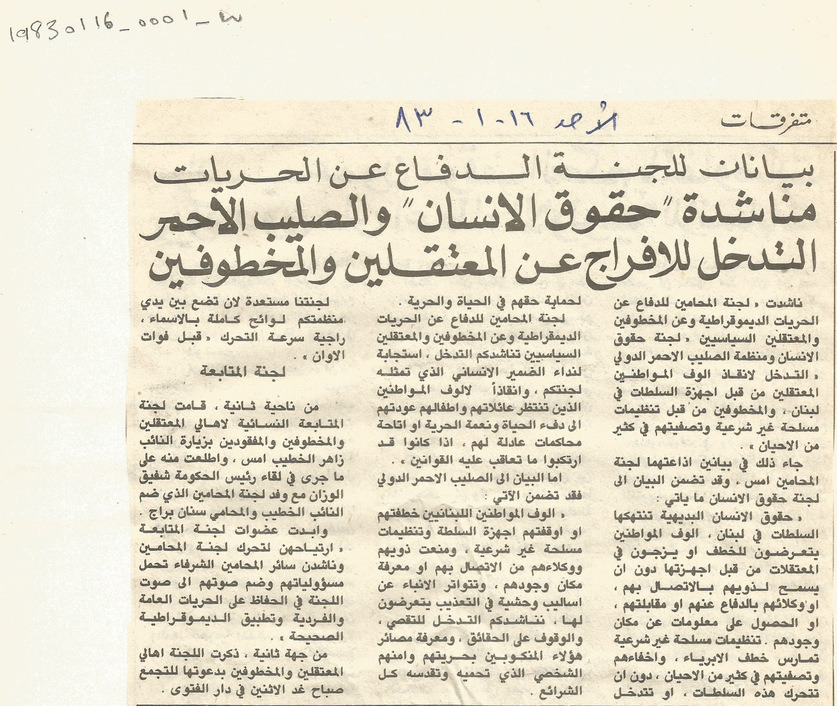 19830116_0001_س
متفرقات
الأحد ١٦-١-٨٣
بيانان للجنة الدفاع عن الحريات
مناشدة "حقوق الانسان" والصليب الأحمر
التدخل للافراج عن المعتقلين والمخطوفين
ناشدت « لجنة المحامين للدفاع عن
الحريات الديموقراطية وعن المخطوفين
والمعتقلين السياسيين » لجنة حقوق
الانسان ومنظمة الصليب الاحمر الدولي
« التدخل لانقاذ الوف المواطنين
المعتقلين من قبل اجهزة السلطات في
لبنان ، والمخطوفين من قبل تنظيمات
مسلحة غير شرعية وتصفيتهم في كثير
من الاحيان » .
جاء ذلك في بيانين اذاعتهما لجنة
المحامين امس ، وقد تضمن البيان الى
لجنة حقوق الانسان ما ياتي :
« حقوق الانسان البديهية تنتهكها
السلطات في لبنان ، الوف المواطنين
يتعرضون للخطف او يزجون في
المعتقلات من قبل اجهزتها دون ان
يسمح لذويهم بالاتصال بهم ،
او وكلائهم بالدفاع عنهم او مقابلتهم ،
او الحصول على معلومات عن مكان
وجودهم . تنظيمات مسلحة غير شرعية
تمارس خطف الابرياء ، واخفاءهم
وتصفيتهم في كثير من الاحيان ، دون ان
تتحرك هذه السلطات ، او تتدخل
لحماية حقهم في الحياة والحرية .
لجنة المحامين للدفاع عن الحريات
الديمقراطية وعن المخطوفين والمعتقلين
السياسيين تناشدكم التدخل ، استجابة
لنداء الضمير الانساني الذي تمثله
لجنتكم ، وانقاذاً لالوف المواطنين
الذين تنتظر عائلاتهم واطفالهم عودتهم
الى دفء الحياة ونعمة الحرية او اتاحة
محاكمات عادلة لهم ، اذا كانوا قد
ارتكبوا ما تعاقب عليه القوانين » .
اما البيان الى الصليب الاحمر الدولي
فقد تضمن الآتي :
« الوف المواطنين اللبنانيين خطفتهم
او اوقفتهم اجهزة السلطة وتنظيمات
مسلحة غير شرعية ، ومنعت ذويهم
ووكلاءهم من الاتصال بهم او معرفة
مكان وجودهم ، وتتواتر الانباء عن
اساليب وحشية في التعذيب يتعرضون
لها ، نناشدكم التدخل للتقصي ،
والوقوف على الحقائق ، ومعرفة مصائر
هؤلاء المنكوبين بحريتهم وامنهم
الشخصي الذي تحميه وتقدسه كل
الشرائع .
لجنتنا مستعدة لان تضع بين يدي
منظمتكم لوائح كاملة بالاسماء ،
راجية سرعة التحرك « قبل فوات
الاوان » .
لجنة المتابعة
من ناحية ثانية ، قامت لجنة
المتابعة النسائية لاهالي المعتقلين
والمخطوفين والمفقودين بزيارة النائب
زاهر الخطيب امس ، واطلعت منه على
ما جرى في لقاء رئيس الحكومة شفيق
الوزان مع وفد لجنة المحامين الذي ضم
النائب الخطيب والمحامي سنان براج .
وابدت عضوات لجنة المتابعة
« ارتياحهن لتحرك لجنة المحامين
وناشدن سائر المحامين الشرفاء تحمل
مسؤولياتهم وضم صوتهم الى صوت
اللجنة في الحفاظ على الحريات العامة
والفردية وتطبيق الديموقراطية
الصحيحة » .
من جهة ثانية ، ذكرت اللجنة اهالي
المعتقلين والمخطوفين بدعوتها للتجمع
صباح غد الاثنين في دار الفتوى .